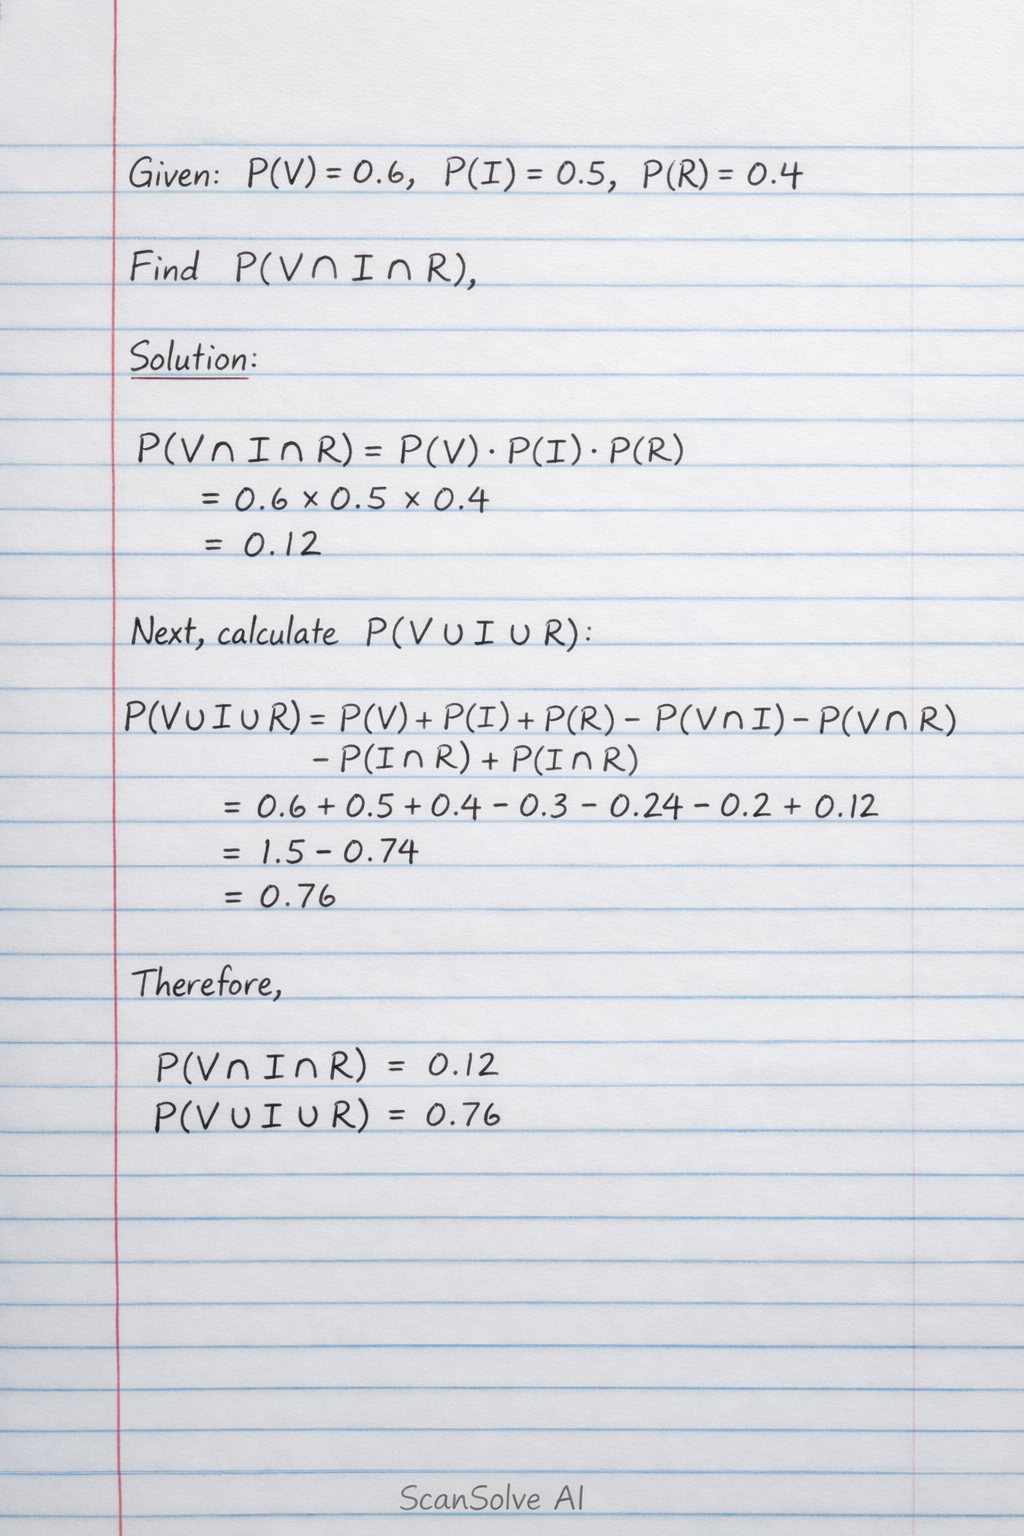 Given: P(V) = 0.6, P(I) = 0.5, P(R) = 0.4
Find P(V ∩ I ∩ R),
Solution:
P(V ∩ I ∩ R) = P(V) · P(I) · P(R)
= 0.6 × 0.5 × 0.4
= 0.12
Next, calculate P(V ∪ I ∪ R):
P(V ∪ I ∪ R) = P(V) + P(I) + P(R) − P(V ∩ I) − P(V ∩ R)
− P(I ∩ R) + P(I ∩ R)
= 0.6 + 0.5 + 0.4 − 0.3 − 0.24 − 0.2 + 0.12
= 1.5 − 0.74
= 0.76
Therefore,
P(V ∩ I ∩ R) = 0.12
P(V ∪ I ∪ R) = 0.76
ScanSolve AI